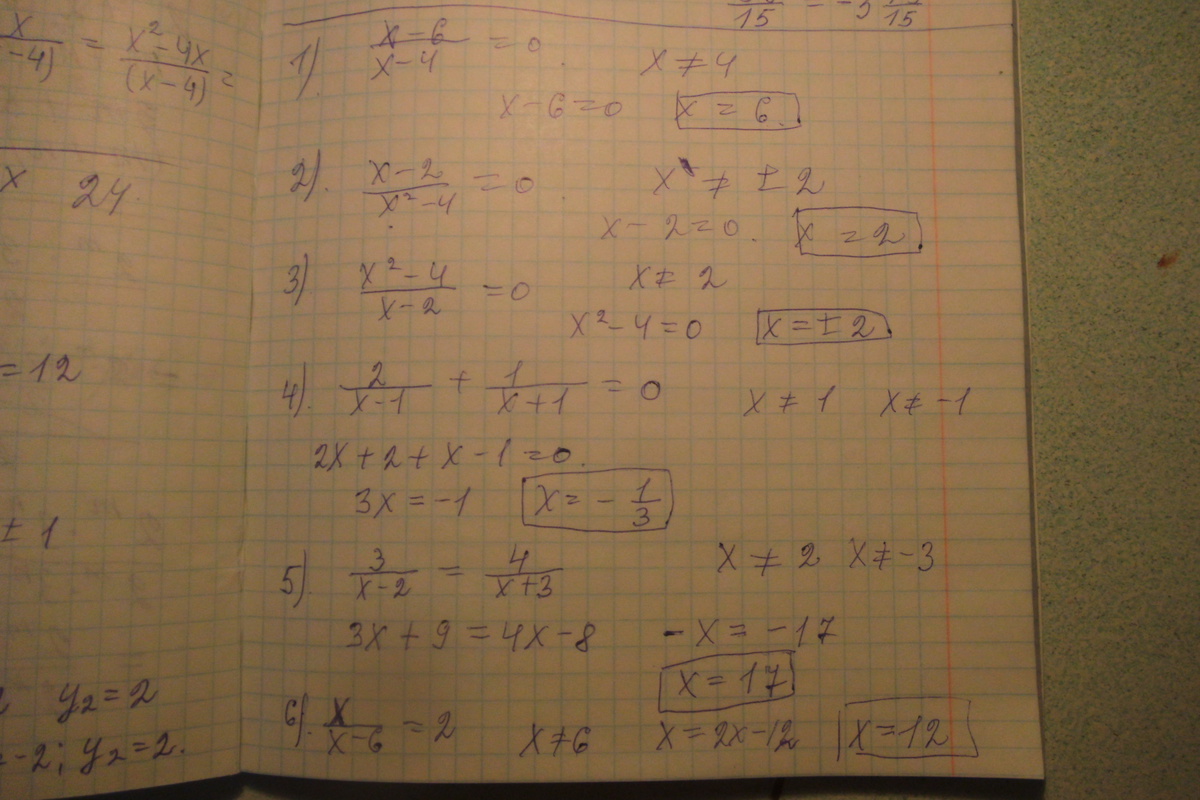 x/(-4) = (x² - 4x)/(x - 4) =
x 24.
= 12
± 1
y₂ = 2
-2; y₂ = 2.
/15 = -5 /15
1). (x - 6)/(x - 4) = 0. x ≠ 4
x - 6 = 0 x = 6.
2). (x - 2)/(x² - 4) = 0 x ≠ ± 2
x - 2 = 0. x = 2
3). (x² - 4)/(x - 2) = 0 x ≠ 2
x² - 4 = 0 x = ± 2
4). 2/(x - 1) + 1/(x + 1) = 0 x ≠ 1 x ≠ -1
2x + 2 + x - 1 = 0.
3x = -1 x = - 1/3
5). 3/(x - 2) = 4/(x + 3) x ≠ 2 x ≠ -3
3x + 9 = 4x - 8 - x = -17
x = 17
6). x/(x - 6) = 2 x ≠ 6 x = 2x - 12 x = 12